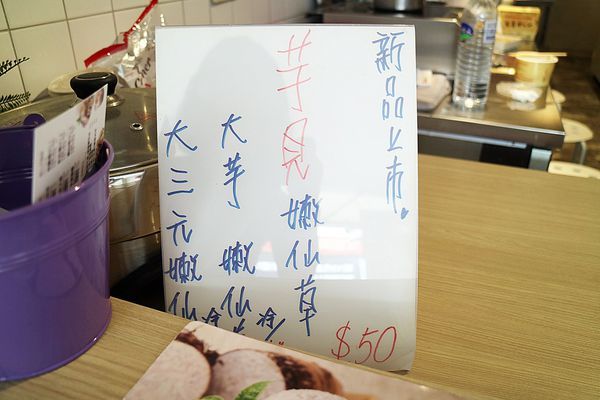 新品上市.
芋見嫩仙草
大芋嫩仙草
大三元嫩仙
冷/
$50